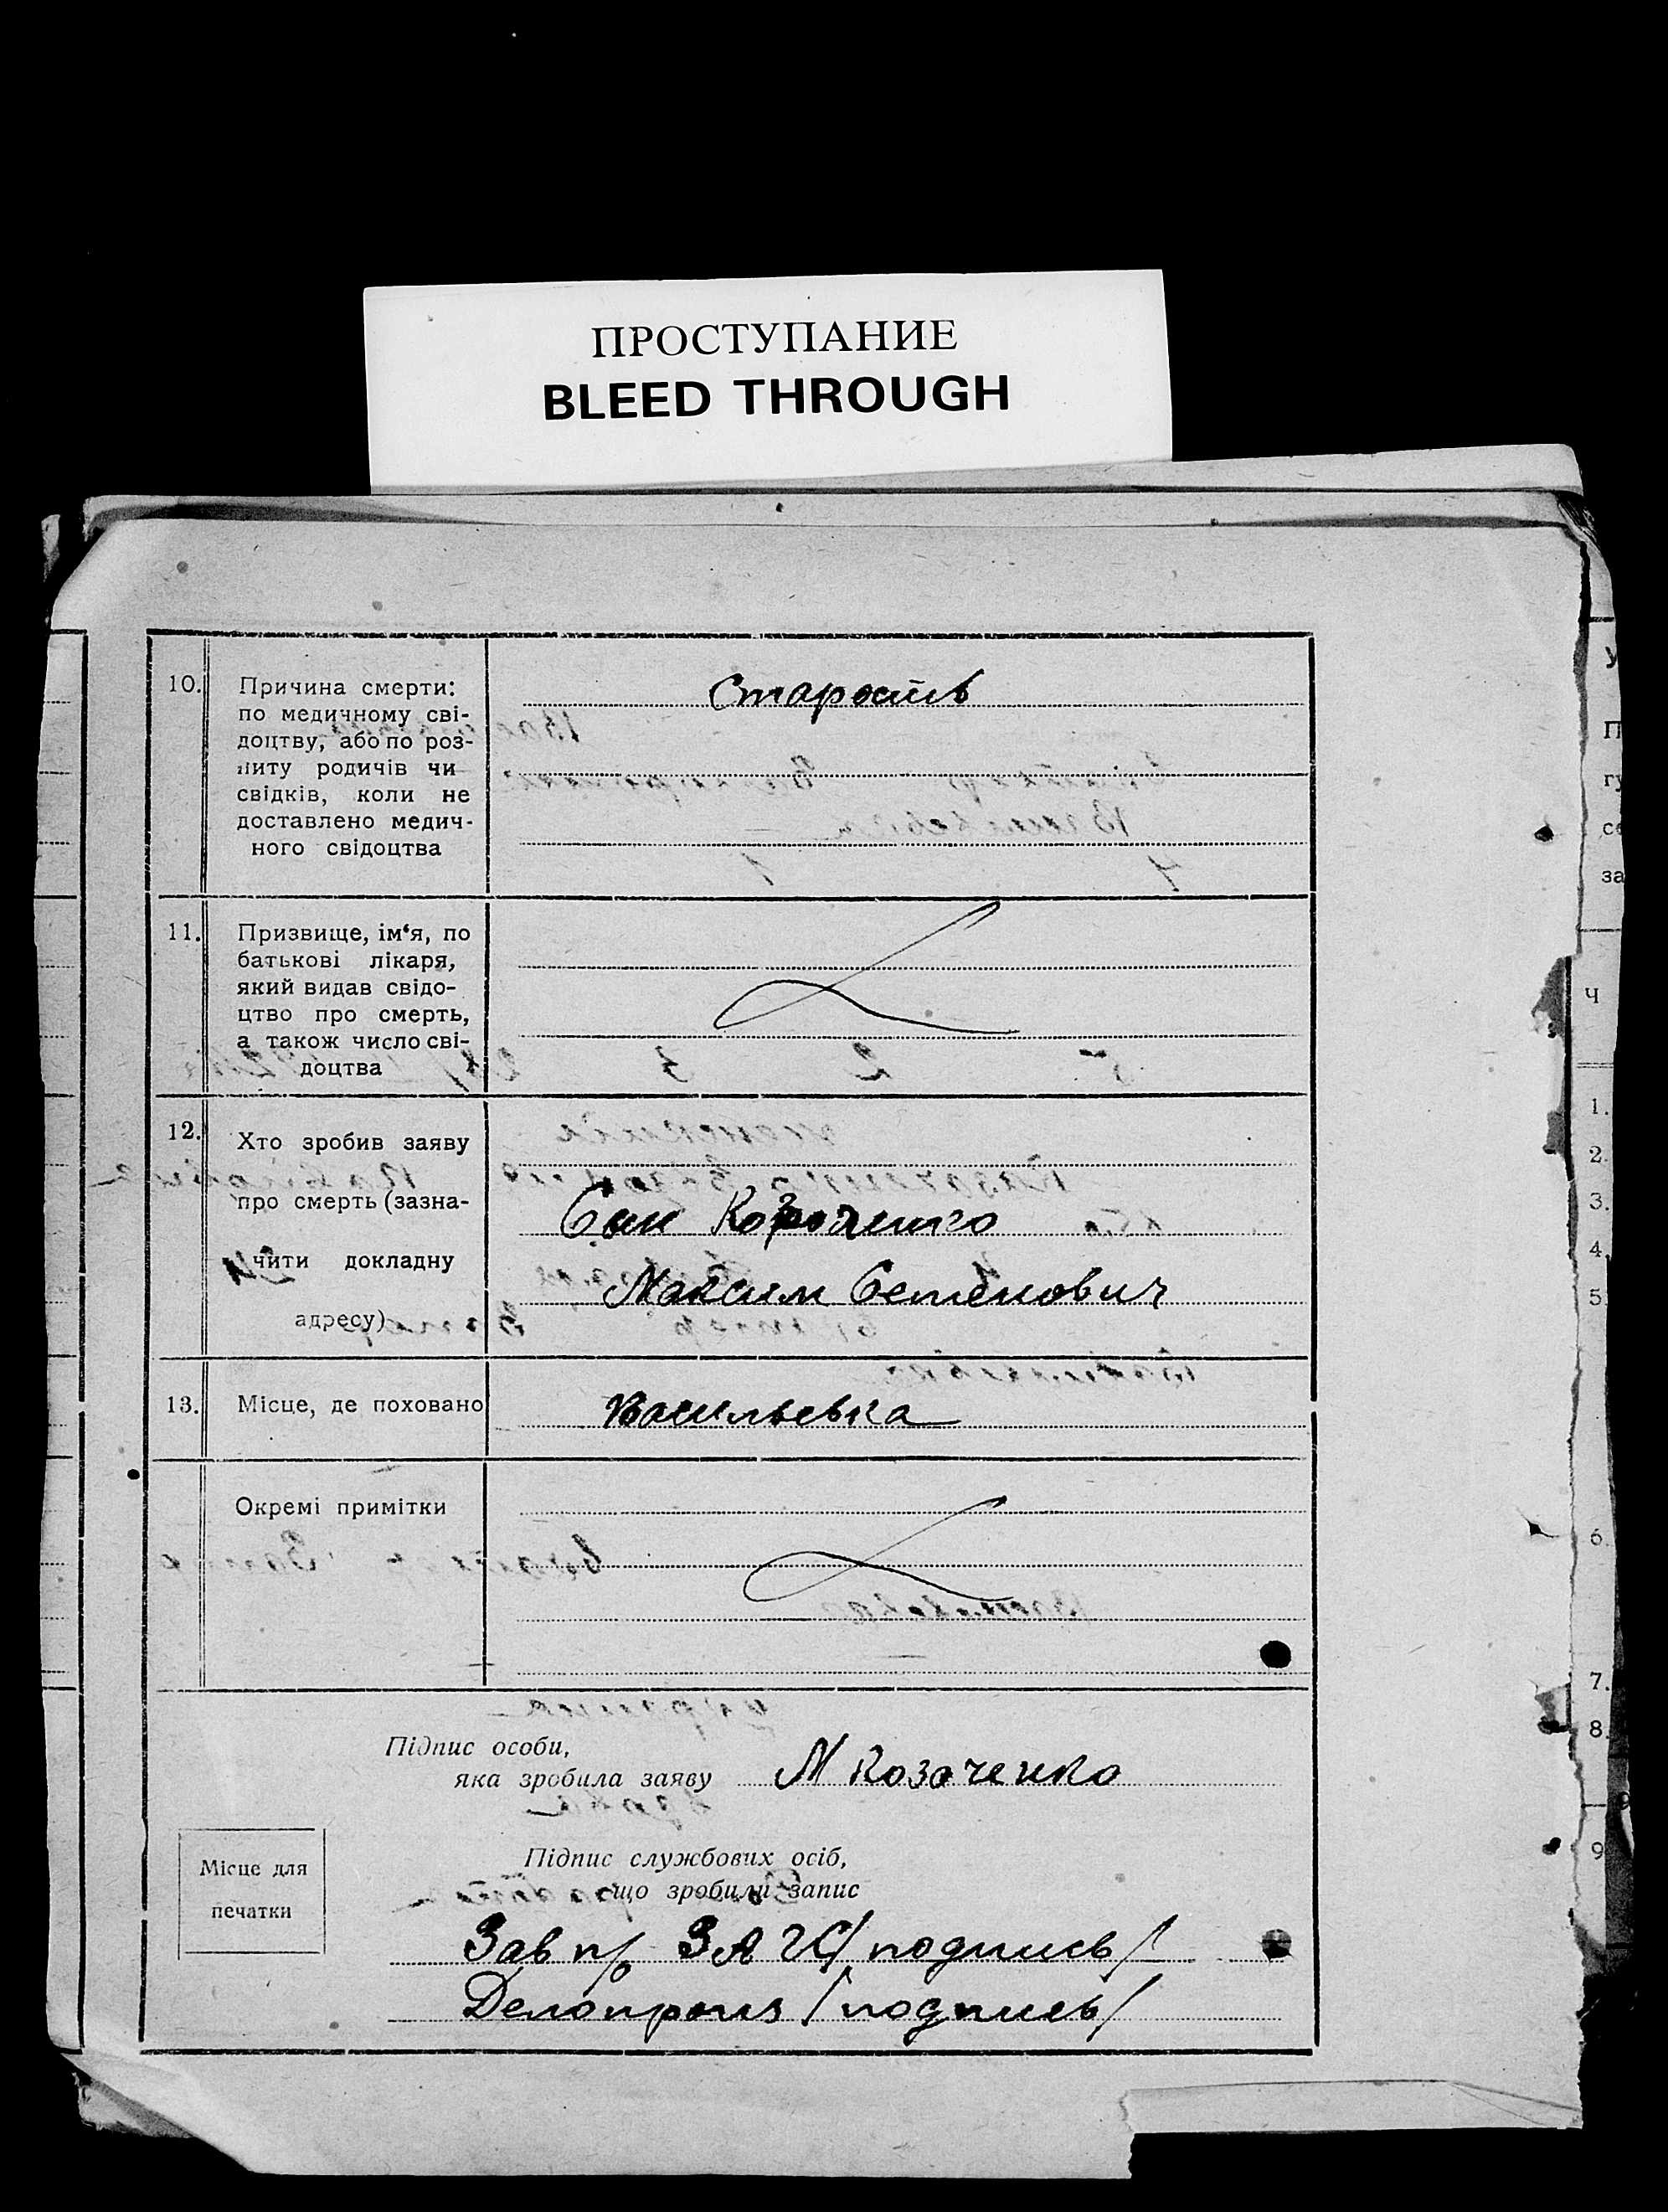 ПРОСТУПАНИЕ
BLEED THROUGH
10. Причина смерти: Старость
по медичному сві-
доцтву, або по роз-
питу родичів чи
свідків, коли не
доставлено медич-
ного свідоцтва
11. Призвище, ім‘я, по
батькові лікаря,
який видав свідо-
цтво про смерть,
а також число сві-
доцтва
12. Хто зробив заяву
про смерть (зазна- Сын Козаченко
чити докладну Максим Семенович
адресу)
13. Місце, де поховано Васильевка
Окремі примітки
Підпис особи,
яка зробила заяву М Козаченко
Місце для
печатки
Підпис службових осіб,
що зробили запис
Зав п/р ЗАГС /подпись/
Делопроиз /подпись/
У
П
гу
се
за
Ч
1.
2.
3.
4.
5.
6.
7.
8.
9